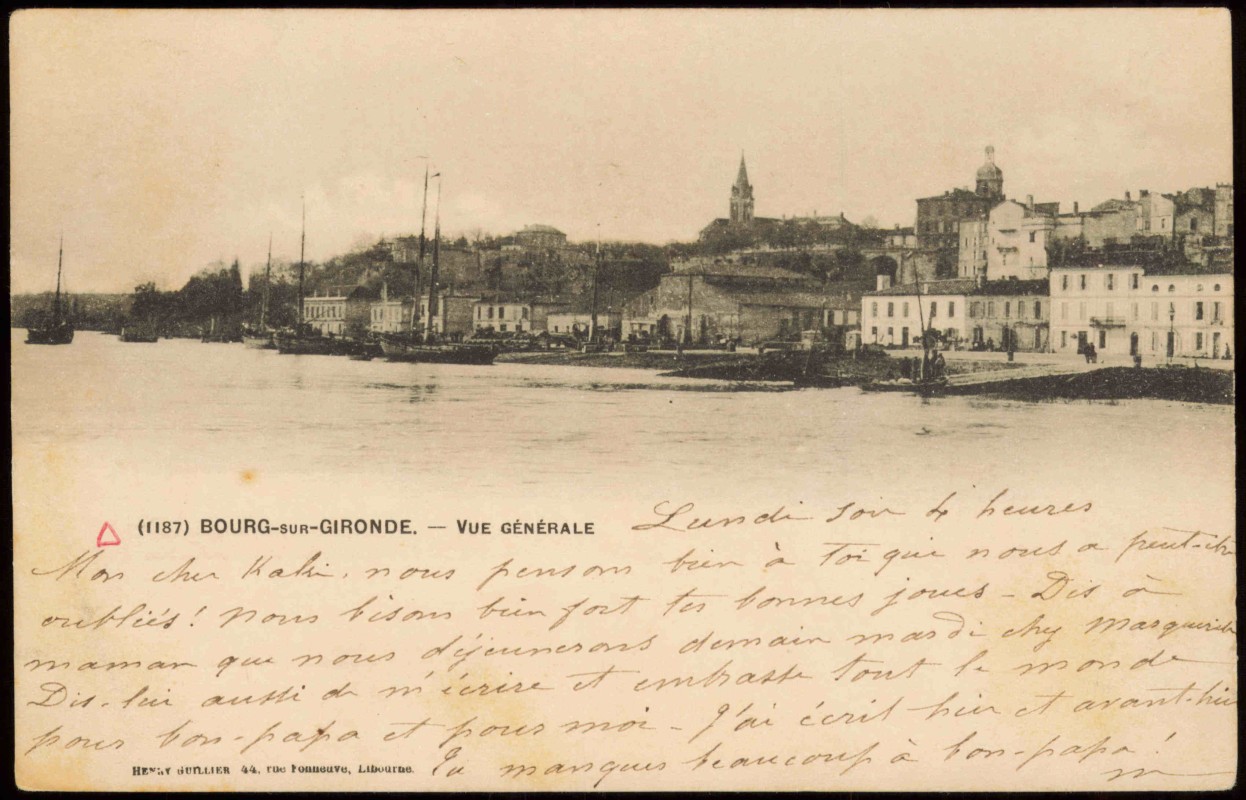 (1187) BOURG-SUR-GIRONDE. — VUE GÉNÉRALE
Lundi soir 4 heures
Mon cher nous pensons bien à toi que nous a peut-être
oubliés! nous bisons bien fort tes bonnes joues - Dis à
maman que nous déjeunerons demain mardi chez Marguerite
Dis-lui aussi de m'écrire et embrasse tout le monde
pour bon-papa et pour moi - J'ai écrit hier et avant-hier
HENRY GUILLIER 44, rue Fonneuve, Libourne.
Tu manques beaucoup à bon-papa!
m